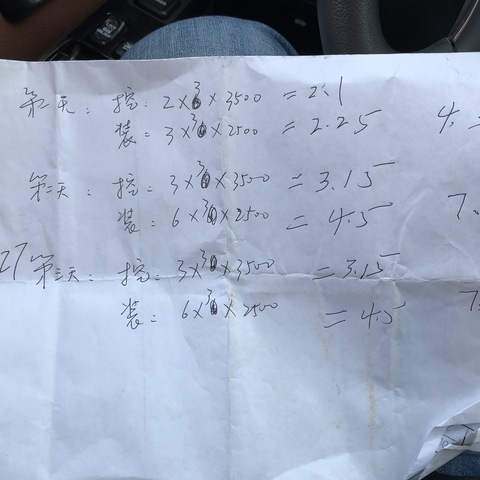 第一天：挖：2×3×3500 = 2.1
装：3×3×2500 = 2.25 4.
第二天：挖：3×3×3500 = 3.15
装：6×3×2500 = 4.5 7.
27 第三天：挖：3×3×3500 = 3.15
装：6×3×2500 = 4.5 7